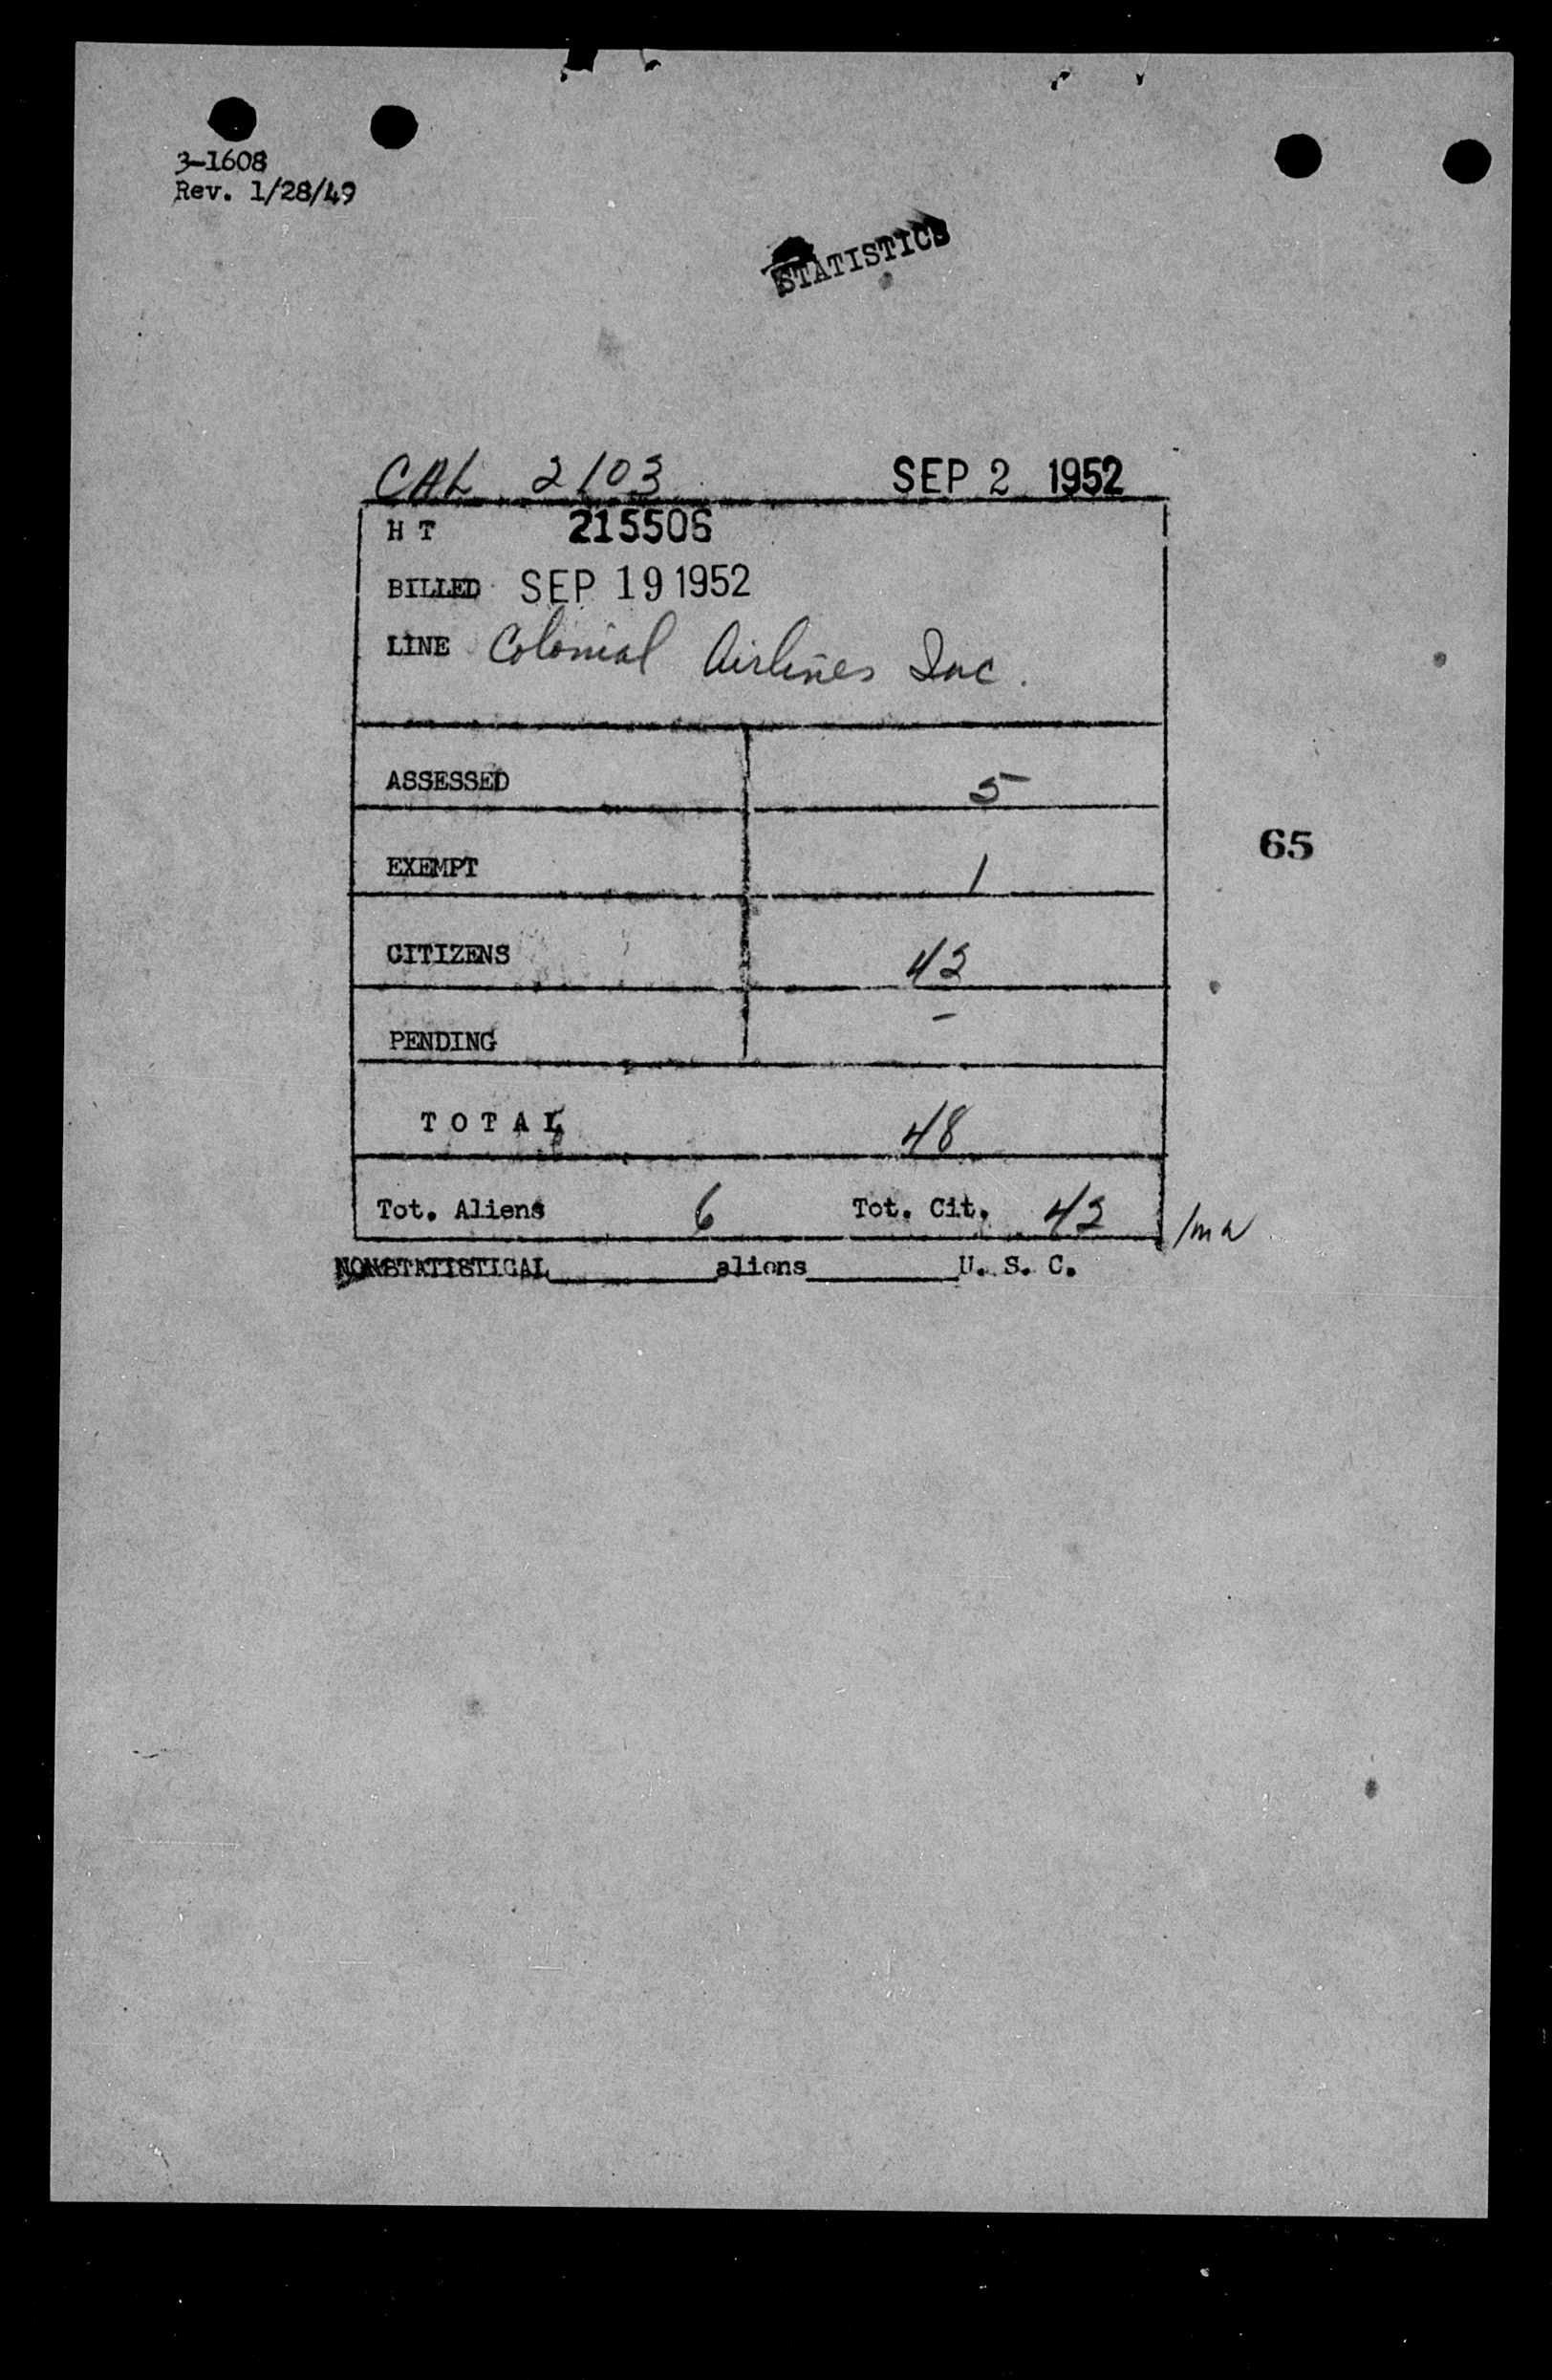 3-1608
Rev. 1/28/49
STATISTICS
CAL 2103 SEP 2 1952
H T 215506
BILLED SEP 19 1952
LINE Colonial Airlines Inc.
ASSESSED 5
EXEMPT 1
65
CITIZENS 42
PENDING -
TOTAL 48
Tot. Aliens 6 Tot. Cit. 42
NONSTATISTICAL aliens U. S. C.